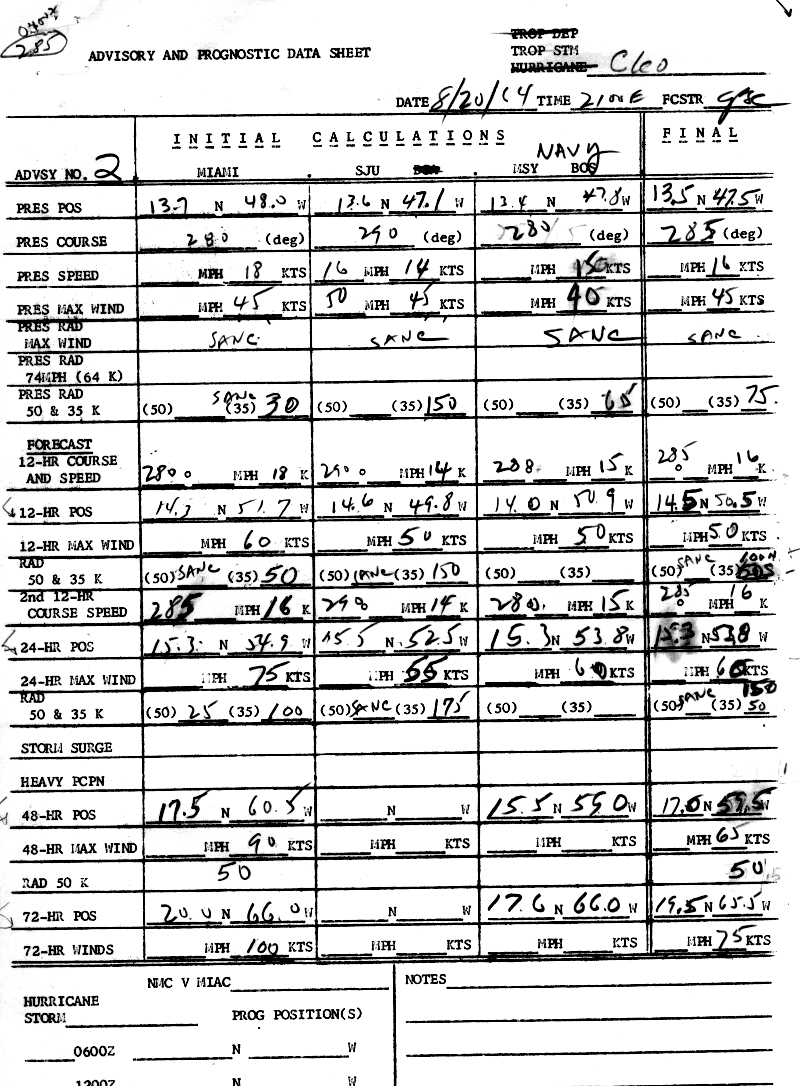 0400Z
285
ADVISORY AND PROGNOSTIC DATA SHEET
TROP DEP
TROP STM
HURRICANE Cleo
DATE 8/20/64 TIME 2100E FCSTR
INITIAL CALCULATIONS FINAL
NAVY
ADVSY NO. 2 MIAMI SJU MSY BOS
PRES POS 13.7 N 48.0 W 13.6 N 47.1 W 13.4 N 47.8 W 13.5 N 47.5 W
PRES COURSE 280 (deg) 290 (deg) 280 (deg) 285 (deg)
PRES SPEED MPH 18 KTS 16 MPH 14 KTS MPH 15 KTS MPH 16 KTS
PRES MAX WIND MPH 45 KTS 50 MPH 45 KTS MPH 40 KTS MPH 45 KTS
PRES RAD
MAX WIND SANC SANC SANC SANC
PRES RAD
74MPH (64 K)
PRES RAD
50 & 35 K (50) SANC (35) 30 (50) (35) 150 (50) (35) 65 (50) (35) 75
FORECAST
12-HR COURSE
AND SPEED 280° MPH 18 K 290° MPH 14 K 288 MPH 15 K 285° MPH 16 K
12-HR POS 14.3 N 51.7 W 14.6 N 49.8 W 14.0 N 50.9 W 14.5 N 50.5 W
12-HR MAX WIND MPH 60 KTS MPH 50 KTS MPH 50 KTS MPH 50 KTS
RAD
50 & 35 K (50) SANC (35) 50 (50) SANC (35) 150 (50) (35) (50) SANC (35) 100N 50S
2nd 12-HR
COURSE SPEED 285 MPH 16 K 290 MPH 14 K 280 MPH 15 K 285° MPH 16 K
24-HR POS 15.3 N 54.9 W 15.5 N 52.5 W 15.3 N 53.8 W 15.3 N 53.8 W
24-HR MAX WIND MPH 75 KTS MPH 55 KTS MPH 60 KTS MPH 60 KTS
RAD
50 & 35 K (50) 25 (35) 100 (50) SANC (35) 175 (50) (35) (50) SANC (35) 150 50
STORM SURGE
HEAVY PCPN
48-HR POS 17.5 N 60.5 W N W 15.5 N 59.0 W 17.0 N 59.5 W
48-HR MAX WIND MPH 90 KTS MPH KTS MPH KTS MPH 65 KTS
RAD 50 K 50 50
72-HR POS 20.0 N 66.0 W N W 17.6 N 66.0 W 19.5 N 65.5 W
72-HR WINDS MPH 100 KTS MPH KTS MPH KTS MPH 75 KTS
NMC V MIAC NOTES
HURRICANE
STORM PROG POSITION(S)
0600Z N W
1200Z N W